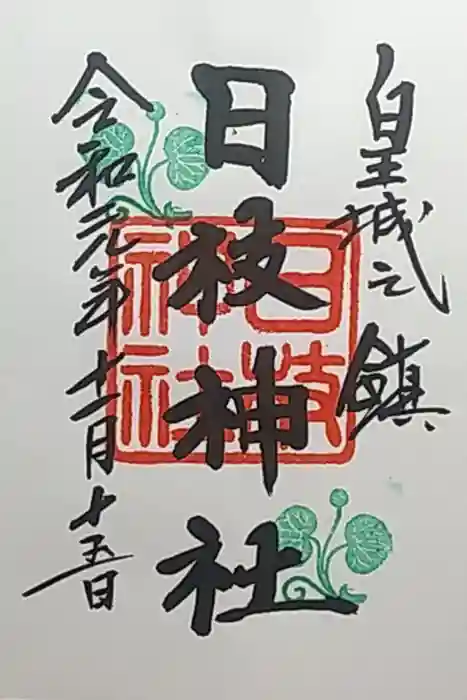 皇城之鎮
日枝神社
日枝神社
令和元年十一月十五日